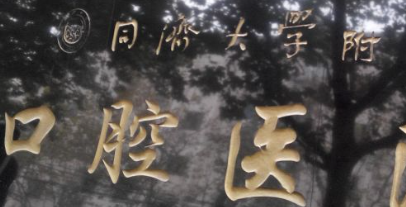 同濟大學附
口腔医